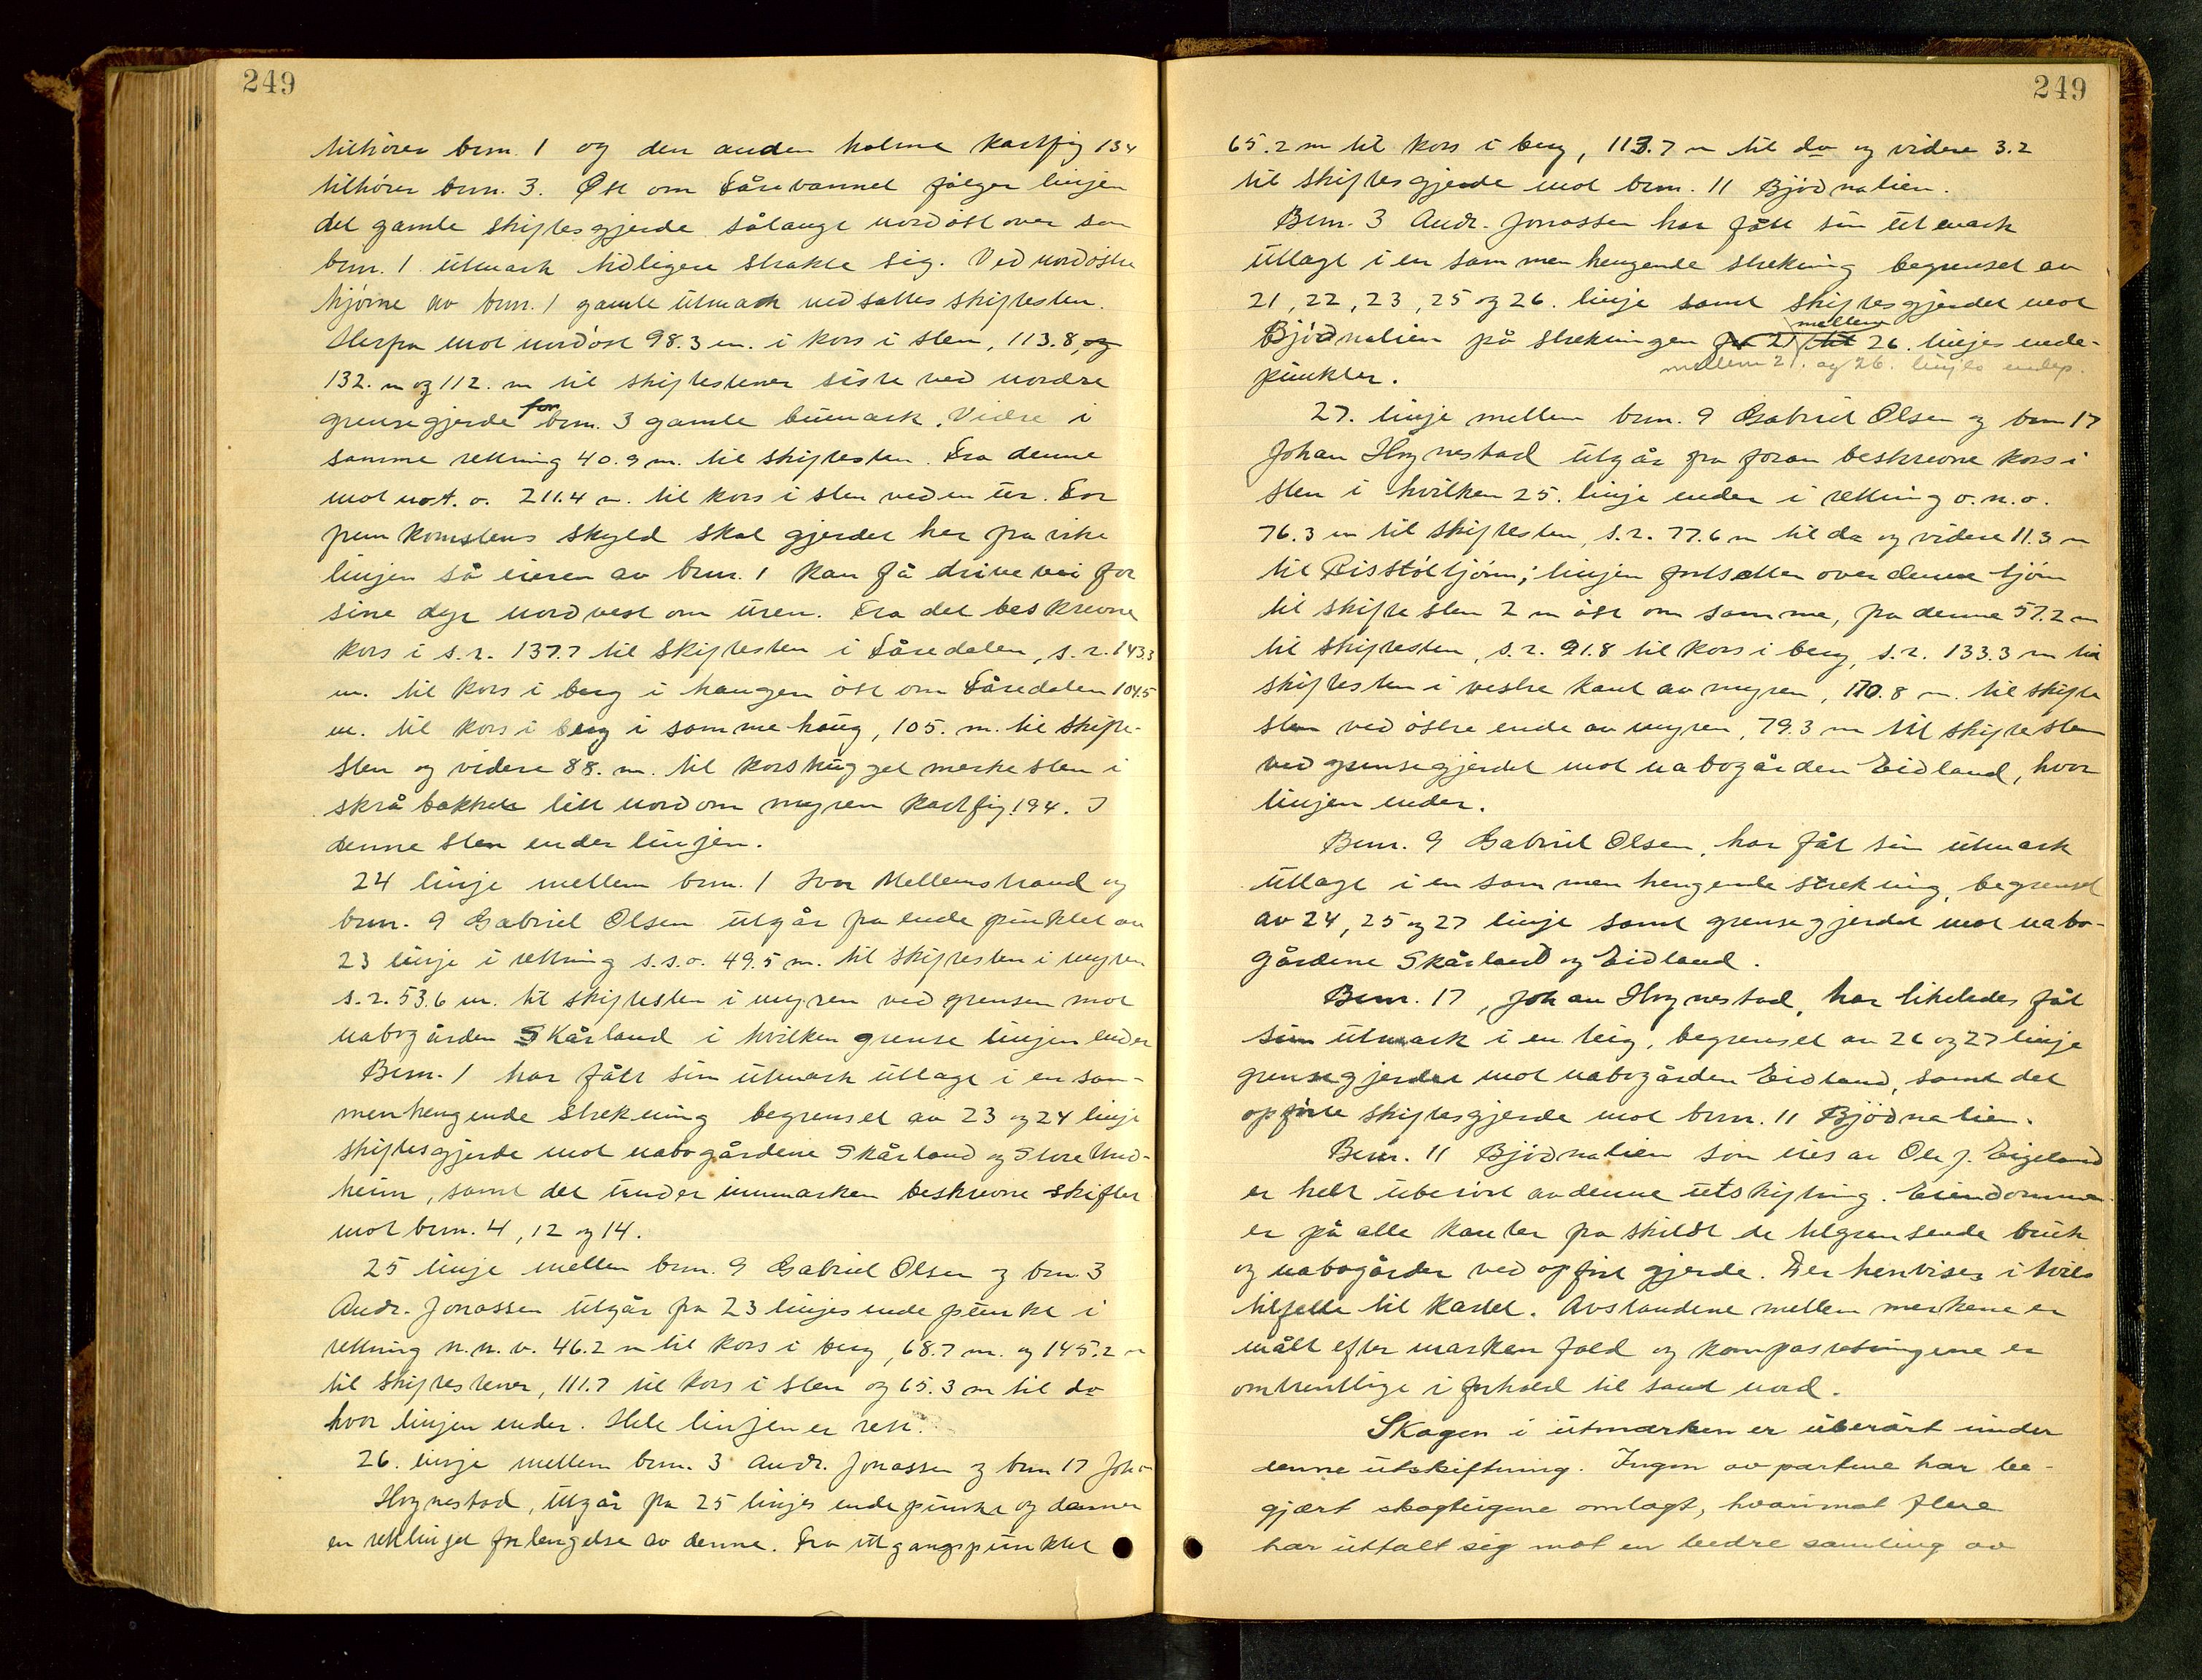 249
tilhører brnr. 1 og den anden holme kartfig 134
tilhører brnr. 3. Øst om Låsevannet følger linjen
det gamle skiftesgjerde sålange nordöstover som
brnr. 1 utmark tidligere strakte sig. Ved nordöstre
hjörne av brnr. 1 gamle utmark nedsattes skiftesten.
Herfra mot nordöst 98.3 m. i kors i sten, 113.8, og
132. m og 112. m til skiftestener siste ved nordre
grensegjerde for brnr. 3 gamle bumark. Videre i
samme retning 40.9 m. til skiftesten. Fra denne
mot n. o. 211.4 m. til kors i sten ved en ur. For
fremkomstens skyld skal gjerdet her fra vike
linjen så eieren av brnr. 1 kan få drive vei for
sine dyr nordvest om uren. Fra det beskrevne
kors i s.r. 137.7 til skiftesten i Låsedalen, s.r. 143.3
m. til kors i berg i haugen öst om Låsedalen 104.5
m. til kors i berg i samme haug, 105. m. til skifte-
sten og videre 88. m. til korshugget merkesten i
skråbakken litt nordom myren kartfig. 194. I
denne sten ender linjen.
24 linje mellem brnr. 1 Ivar Mellemstrand og
brnr. 9 Gabriel Olsen utgår fra endepunktet av
23 linje i retning s.s.o. 49.5 m. til skiftesten i myren
s.r. 53.6 m. til skiftesten i myren ved grensen mot
nabogården Skårland i hvilken grense linjen ender
Brnr. 1 har fått sin utmark utlagt i en sam-
menhengende strekning begrenset av 23 og 24 linje
skiftesgjerde mot nabogårdene Skårland og Store Und-
heim, samt det under innmarken beskrevne skifter
mot brnr. 4, 12 og 14.
25 linje mellem brnr. 9 Gabriel Olsen og brnr. 3
Andr. Jonassen utgår fra 23 linjes endepunkt i
retning n.n.v. 46.2 m til kors i berg, 68.7 m. og 145.2 m
til skiftestener, 111.7 til kors i sten og 65.3 m til do
hvor linjen ender. Hele linjen er rett.
26. linje mellem brnr. 3 Andr. Jonassen og brnr 17 Johan
Hognestad, utgår fra 25 linjes endepunkt og danner
en rettlinjet forlengelse av denne. Fra utgangspunktet
249
65.2 m til kors i berg, 113.7 m til do og videre 3.2
til skiftesgjerde mot brnr. 11 Bjödnalien.
Brnr. 3 Andr. Jonassen har fått sin utmark
utlagt i en sammenhengende strekning begrenset av
21, 22, 23, 25 og 26. linje samt skiftesgjerdet mot
mellem
Bjödnalien på strekningen fra 21 til 26. linjes ende-
mellem 21. og 26. linjes endep.
punkter.
27. linje mellem brnr. 9 Gabriel Olsen og brnr 17
Johan Hognestad utgår fra foran beskrevne kors i
sten i hvilken 25. linje ender i retning o.n.o.
76.3 m til skiftesten, s.r. 77.6 m til do og videre 11.3 m
til Risstöltjörn; linjen fortsetter over denne tjörn
til skiftesten 2 m öst om samme, fra denne 57.2 m
til skiftesten, s.r. 91.8 til kors i berg, s.r. 133.3 m til
skiftesten i vestre kant av myren, 170.8 m. til skifte
sten ved östre ende av myren, 79.3 m til skiftesten
ved grensegjerdet mot nabogården Eidland, hvor
linjen ender.
Brnr. 9 Gabriel Olsen, har fåt sin utmark
utlagt i en sammenhengende strekning, begrenset
av 24, 25 og 27 linje samt grensegjerdet mot nabo-
gårdene Skårland og Eidland.
Brnr. 17, Johan Hognestad, har likeledes fåt
sin utmark i en teig, begrenset av 26 og 27 linje
grensegjerdet mot nabogården Eidland, samt det
opförte skiftesgjerde mot brnr. 11 Bjödnalien.
Brnr. 11 Bjödnalien som eies av Ole J. Eigeland
er helt uberört av denne utskiftning. Eiendommen
er på alle kanter fra skildt de tilgrensende bruk
og nabogårder ved opfört gjerde. Der henvises i hvert
tilfelle til kartet. Avstandene mellem merkene er
målt efter marken fald og kompasretningene er
omtrentlige i forhold til sant nord.
Skogen i utmarken er uberört under
denne utskiftning. Ingen av partene har be-
gjært skogteigene omlagt, hvorimot flere
har uttalt sig mot en bedre samling av